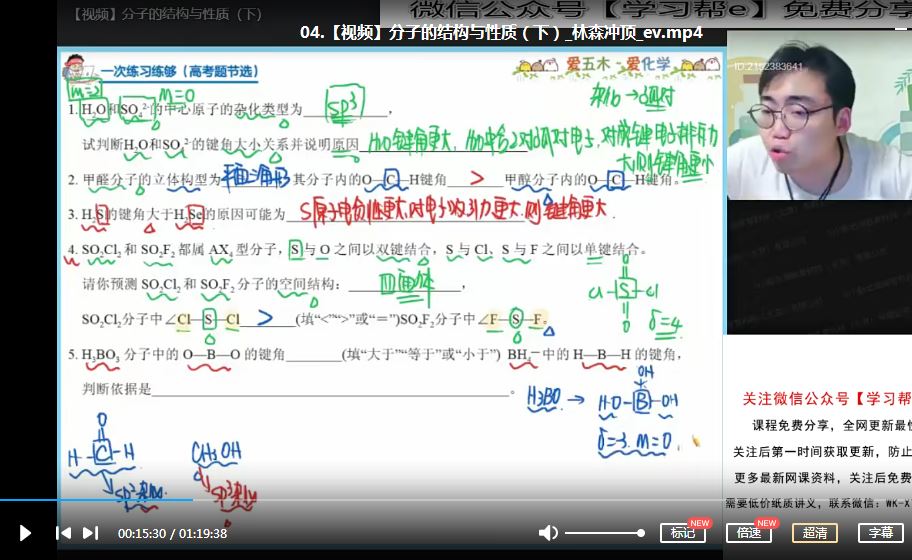 【视频】分子的结构与性质（下）
微信公众号【学习帮e】免费分享
04.【视频】分子的结构与性质（下）_林森冲顶_ev.mp4
一次练习练够（高考题节选）
爱五木·爱化学
ID:2152383641
m=2
m=0
杂化→
1. H₂O和SO₄²⁻的中心原子的杂化类型为 SP³ ，
试判断H₂O和SO₄²⁻的键角大小关系并说明原因
2. 甲醛分子的立体构型为 平面三角形 其分子内的O—C—H键角 > 甲醇分子内的O—C—H键角。
3. H₂S的键角大于H₂Se的原因可能为 S原子电负性更大,对电子的引力更大,则键角更大.
4. SO₂Cl₂和SO₂F₂都属AX₄型分子，S与O之间以双键结合，S与Cl、S与F之间以单键结合。
请你预测SO₂Cl₂和SO₂F₂分子的空间结构： 四面体 ，
O
Cl—S—Cl
O
δ=4
SO₂Cl₂分子中∠Cl—S—Cl > (填“<”“>”或“＝”)SO₂F₂分子中∠F—S—F。
5. H₃BO₃分子中的O—B—O的键角 (填“大于”“等于”或“小于”) BH₄⁻中的H—B—H的键角，
判断依据是 。
H₃BO →
OH
HO—B—OH
δ=3. m=0.
O
H—C—H
SP²杂化.
CH₃OH
SP³杂化
关注微信公众号【学习帮
课程免费分享，全网更新最
关注后第一时间获取更新，防止
更多最新网课资料，关注后免费
需要低价纸质讲义，联系微信：WK-X
00:15:30 / 01:19:38
标记
NEW
倍速
NEW
超清
字幕